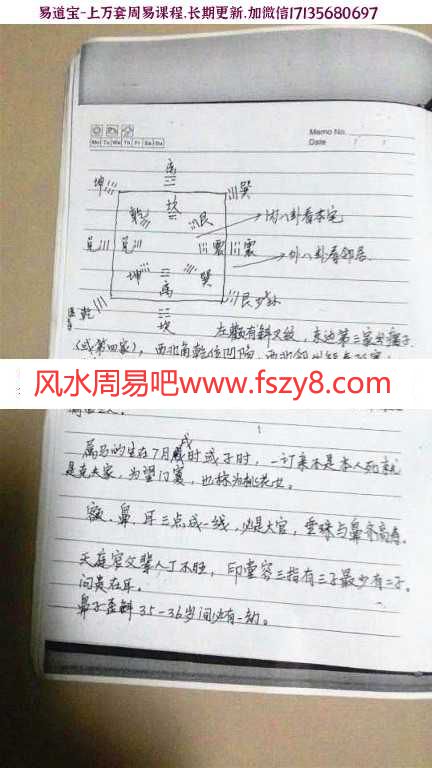 易道宝-上万套周易课程.长期更新.加微信17135680697
Memo No.
Date / /
Mo Tu We Th Fr Sa Su
离
坤 坎 巽
乾 艮
内八卦看本宅
兑 兑 震 震
外八卦看邻居
坤 巽
离
乾 艮
坎
左颧有斜叉纹，东边第三家出瘸子
(或第四家)，西北角乾位凹陷
风水周易吧www.fszy8.com
属马的生在7月戌时或子时，一订亲不是本人死就
是克夫家，为望门寡，也称为桃花女。
额、鼻、耳三点成一线，必是大官，垂珠与鼻齐高寿。
天庭窄父辈人丁不旺，印堂容三指有三子最少有二子。
问贵在耳。
鼻子歪斜35-36岁间必有一劫。